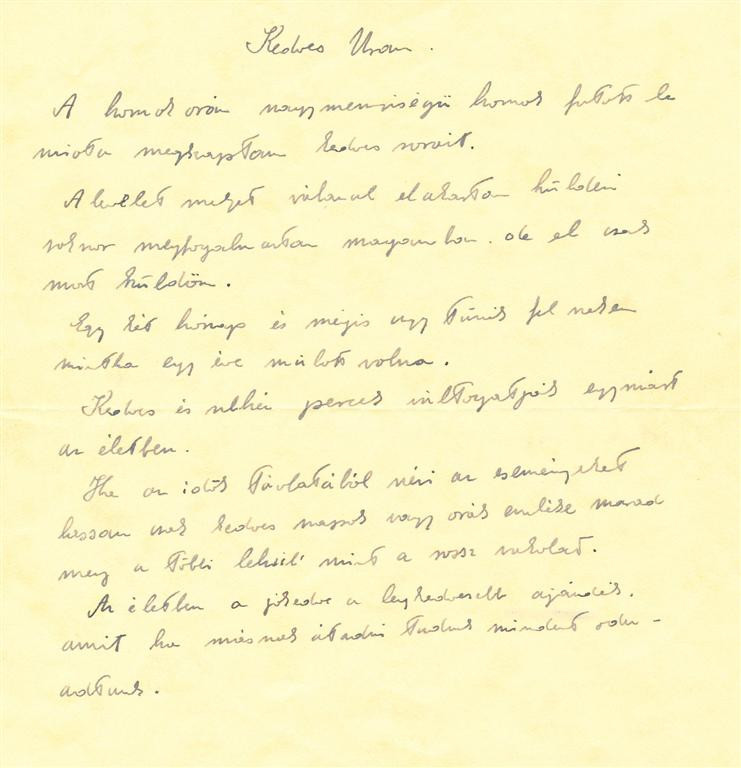 Kedves Uram.
A homok órán nagymennyiségű homok futott le
miota megkaptam kedves sorait.
A levelet melyet valamal elakartam küldeni
sokszor megfogalmaztam magamban. de el csak
most küldöm.
Egy két hónap és mégis ugy tűnik fel nekem
mintha egy éve múlott volna.
Kedves és nehéz percek váltogatják egymást
az életben.
Ha az idők távlatából nézi az eseményeket
lassan csak kedves napok vagy órák emléke marad
meg a többi lehull mint a rossz vakolat.
Az életben a jókedv a legkedvesebb ajándék.
amit ha másnak átadni tudunk mindent oda-
adtunk.